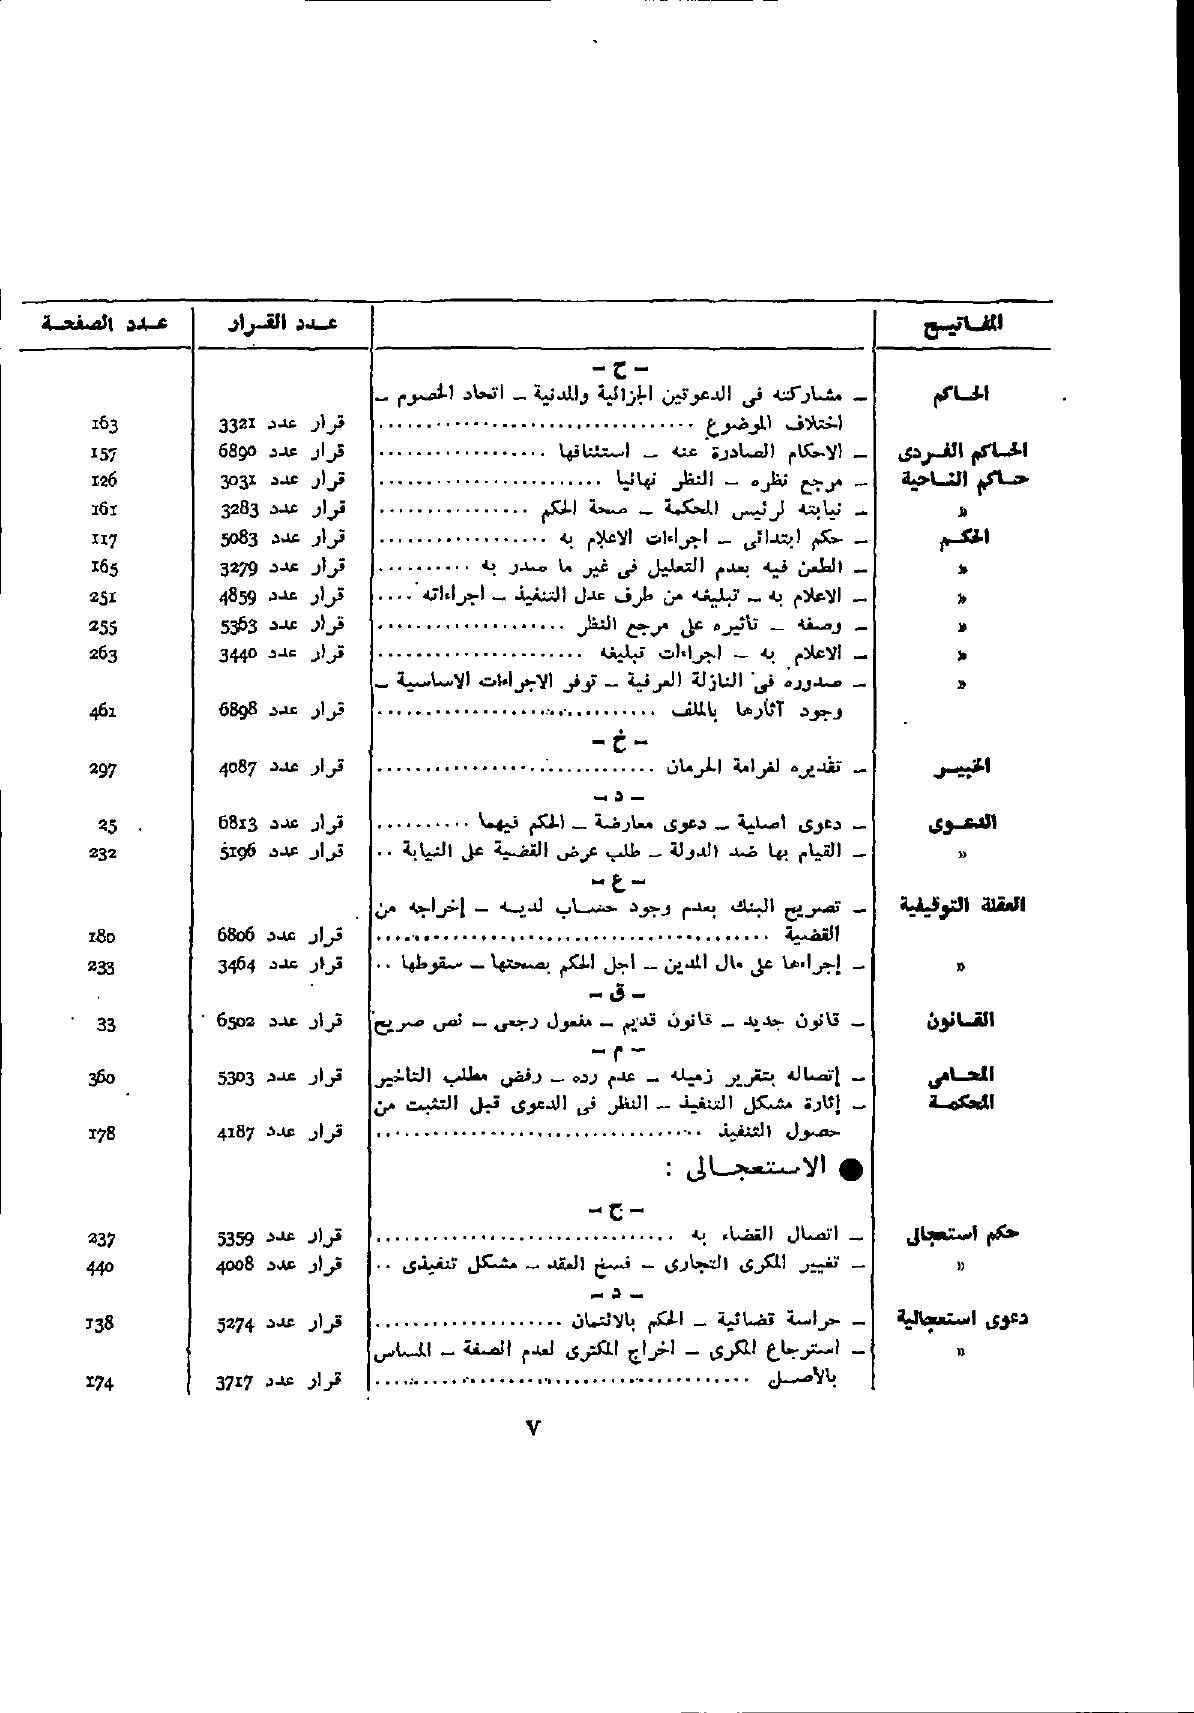 المفاتيح عدد القرار عدد الصفحة
- ح -
الحاكم - مشاركته فى الدعوتين الجزائية والمدنية - اتحاد الخصوم -
اختلاف الموضوع ................................ قرار عدد 3321 163
الحاكم الفردى - الاحكام الصادرة عنه - استئنافها .................. قرار عدد 6890 157
حاكم الناحية - مرجع نظره - النظر نهائيا ....................... قرار عدد 3031 126
» - نيابته لرئيس المحكمة - صحة الحكم ............... قرار عدد 3283 161
الحكم - حكم ابتدائى - اجراءات الاعلام به ................. قرار عدد 5083 117
» - الطعن فيه بعدم التعليل فى غير ما صدر به .......... قرار عدد 3279 165
» - الاعلام به - تبليغه من طرف عدل التنفيذ - اجراءاته .... قرار عدد 4859 251
» - وصفه - تأثيره على مرجع النظر ................... قرار عدد 5363 255
» - الاعلام به - اجراءات تبليغه ..................... قرار عدد 3440 263
» - صدوره فى النازلة العرفية - توفر الاجراءات الاساسية -
وجود آثارها بالملف ............................ قرار عدد 6898 461
- خ -
الخبير - تقديره لغرامة الحرمان ............................ قرار عدد 4087 297
- د -
الدعوى - دعوى اصلية - دعوى معارضة - الحكم فيهما .......... قرار عدد 6813 25
» - القيام بها ضد الدولة - طلب عرض القضية على النيابة .. قرار عدد 5196 232
- ع -
العقلة التوقيفية - تصريح البنك بعدم وجود حساب لديه - إخراجه من
القضية ........................................ قرار عدد 6806 180
» - إجراءها على مال المدين - اجل الحكم بصحتها - سقوطها .. قرار عدد 3464 233
- ق -
القانون - قانون جديد - قانون قديم - مفعول رجعى - نص صريح قرار عدد 6502 33
- م -
المحامى - إتصاله بتقرير زميله - عدم رده - رفض مطلب التاخير قرار عدد 5303 360
المحكمة - إثارة مشكل التنفيذ - النظر فى الدعوى قبل التثبت من
حصول التنفيذ ................................. قرار عدد 4187 178
● الاستعجالى :
- ح -
حكم استعجالى - اتصال القضاء به .............................. قرار عدد 5359 237
» - تغيير المكرى التجارى - فسخ العقد - مشكل تنفيذى .. قرار عدد 4008 440
- د -
دعوى استعجالية - حراسة قضائية - الحكم بالائتمان ................... قرار عدد 5274 138
» - استرجاع المكرى - اخراج المكترى لعدم الصفة - المساس
بالأصل ...................................... قرار عدد 3717 174
٧